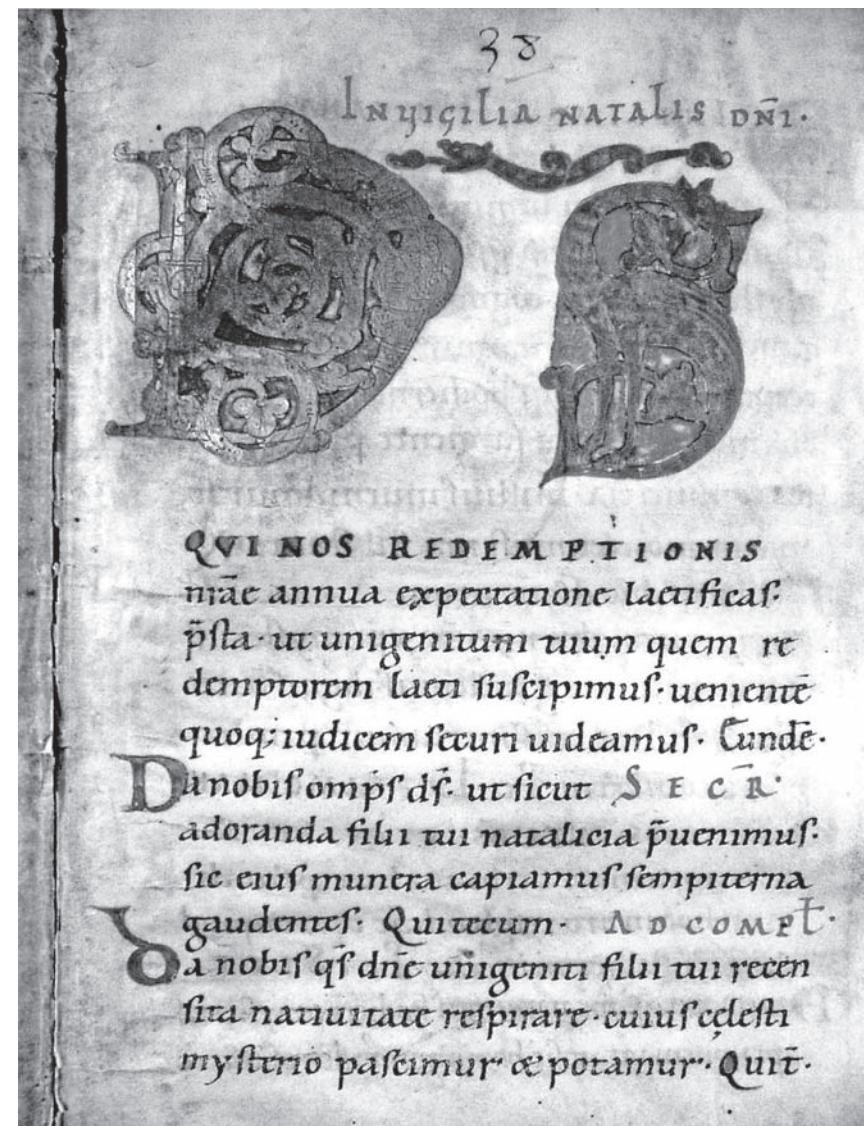 38
IN VIGILIA NATALIS DN̄I·
DS
QVI NOS REDEMPTIONIS
nr̄ae annua expectatione laetificas·
p̄sta· ut unigenitum tuum quem re
demptorem laeti suscipimus· uenientē
quoq; iudicem securi uideamus· Eundē·
Da nobis omp̄s ds̄· ut sicut SECR̄·
adoranda filii tui natalicia p̄uenimus·
sic eius munera capiamus sempiterna
gaudentes· Qui tecum· AD COMPL̄·
Da nobis qs̄ dn̄e unigeniti filii tui recen
sita natiuitate respirare· cuius cęlesti
mysterio pascimur & potamur· Quit̄·